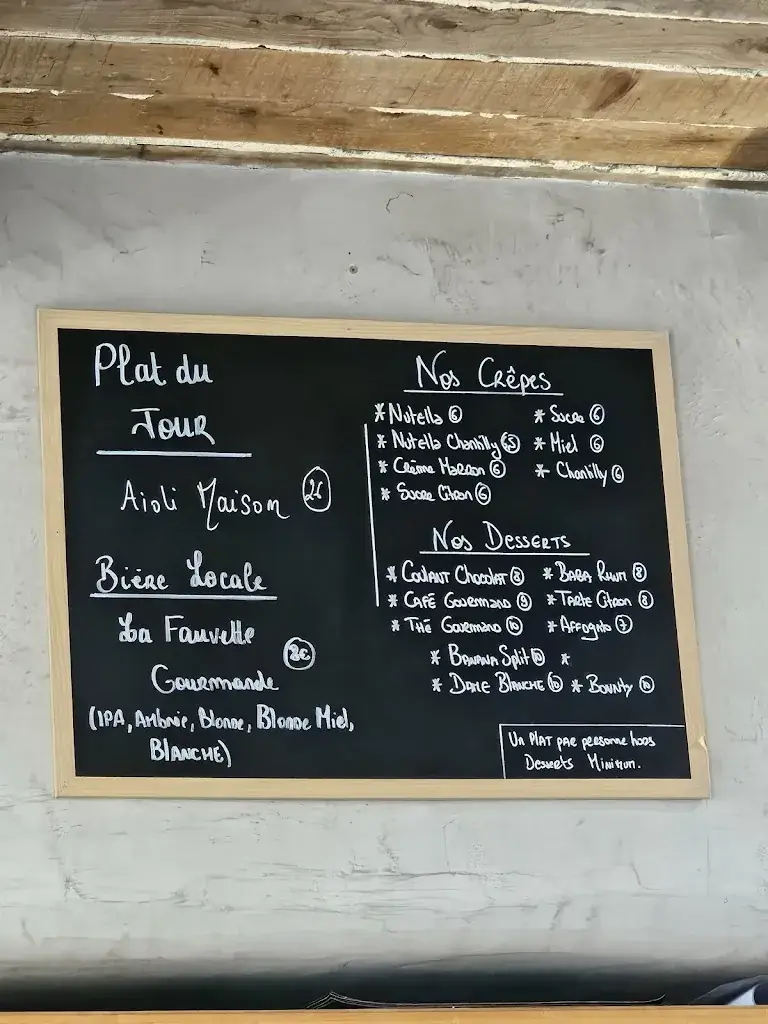 Plat du
Jour
Aioli Maison 26
Bière Locale
La Fauvette
Gourmande 8€
(IPA, Ambrée, Blonde, Blonde Miel,
Blanche)
Nos Crêpes
* Nutella 6 * Sucre 6
* Nutella Chantilly 6,5 * Miel 6
* Crème Marron 6 * Chantilly 6
* Sucre Citron 6
Nos Desserts
* Coulant Chocolat 8 * Baba Rhum 8
* Café Gourmand 9 * Tarte Citron 8
* Thé Gourmand 10 * Affogato 7
* Banana Split 10 *
* Dame Blanche 10 * Bounty 10
Un Plat par personne hors
Desserts Minimum.